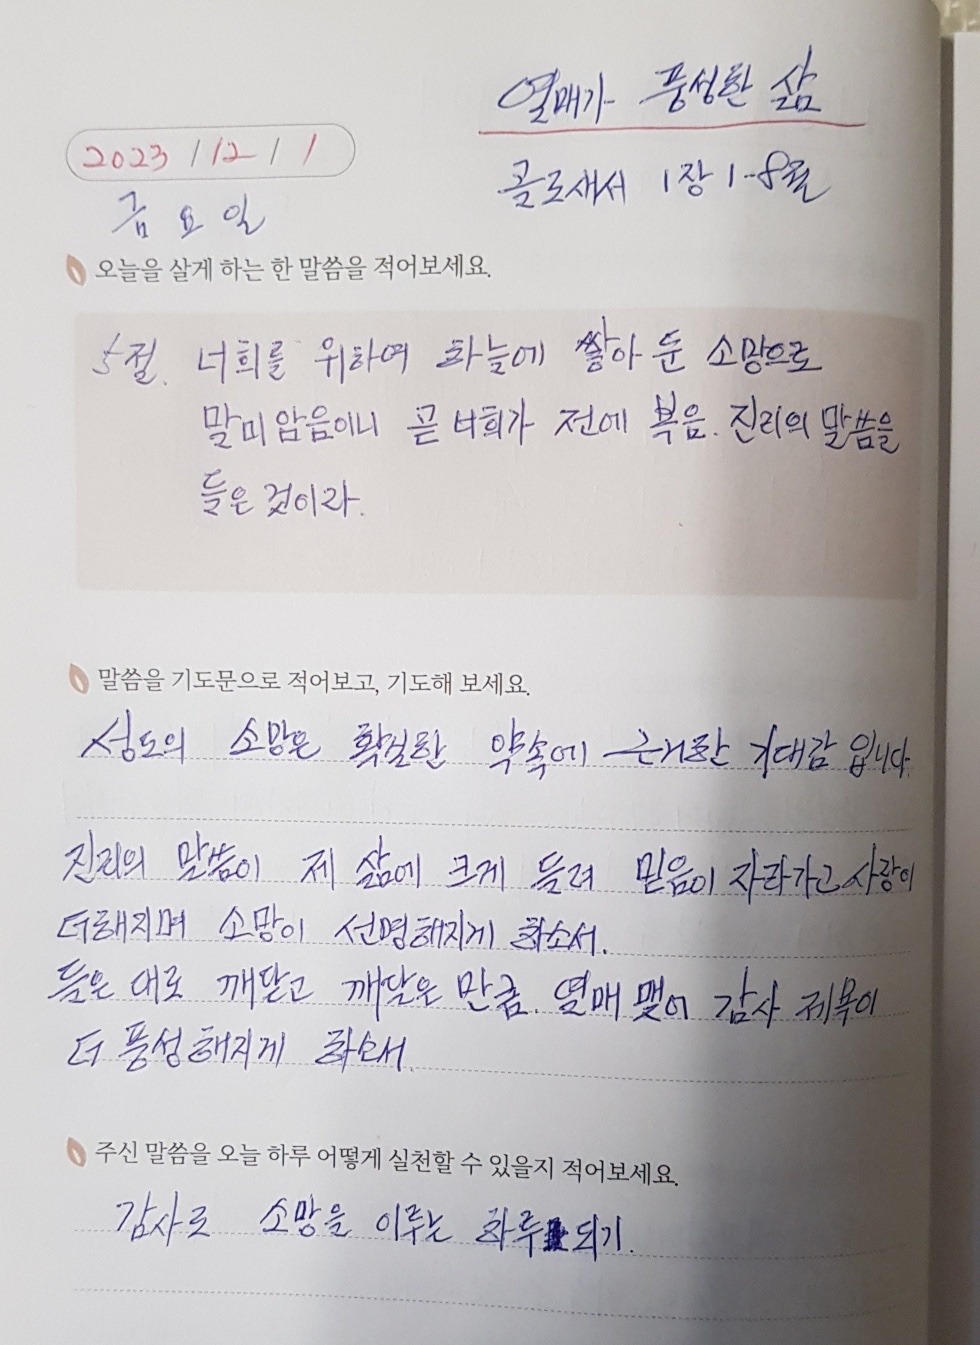 열매가 풍성한 삶
2023 / 12 / 1
골로새서 1장 1-8절
금요일
오늘을 살게 하는 한 말씀을 적어보세요.
5절. 너희를 위하여 하늘에 쌓아 둔 소망으로
말미암음이니 곧 너희가 전에 복음. 진리의 말씀을
들은 것이라.
말씀을 기도문으로 적어보고, 기도해 보세요.
성도의 소망은 확실한 약속에 근거한 기대감 입니다.
진리의 말씀이 제 삶에 크게 들려 믿음이 자라가고 사랑이
더해지며 소망이 선명해지게 하소서.
들은 대로 깨닫고 깨달은 만큼. 열매 맺어 감사 제목이
더 풍성해지게 하소서.
주신 말씀을 오늘 하루 어떻게 실천할 수 있을지 적어보세요.
감사로 소망을 이루는 하루 되기.